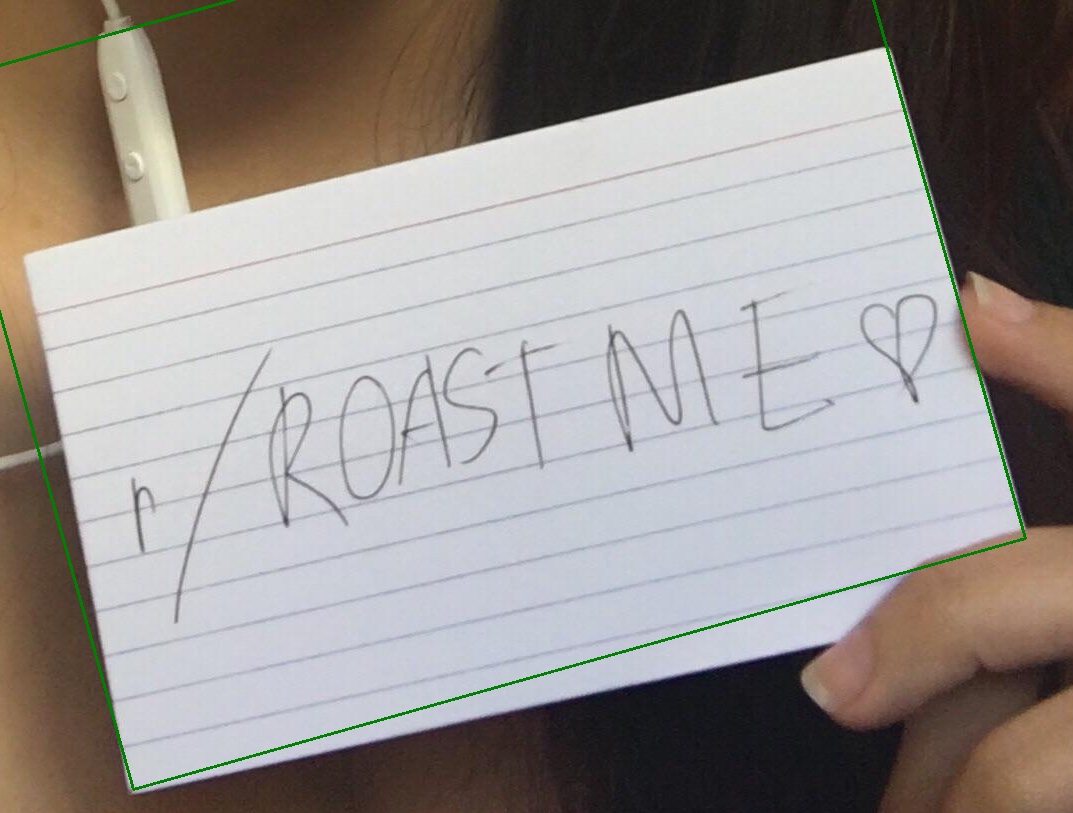 r/ROAST ME ♡